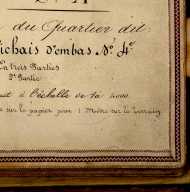 du Quartier dit
ichais d'embas. N.º 4ᵉ
En trois Parties
2ᵉ Partie
à l'échelle de 1 à
sur le papier pour 1 Mètre sur le Terrain